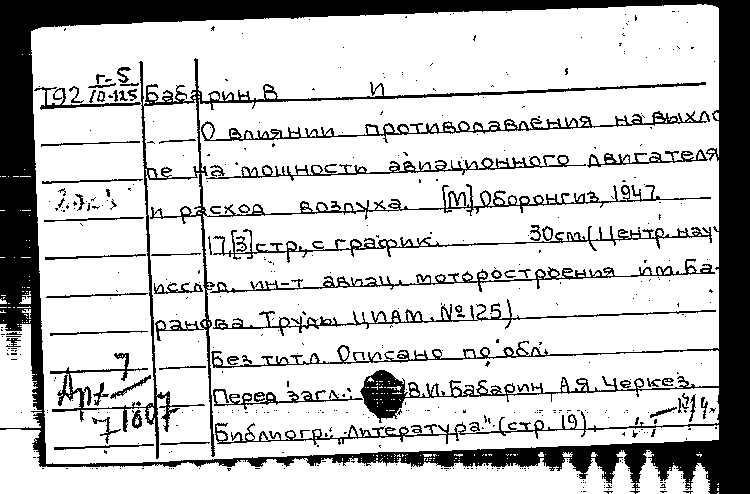 Т92 Г-5/10-125 Бабарин, В И
О влиянии противодавления на выхло
пе на мощность авиационного двигателя
и расход воздуха. [М], Оборонгиз, 1947.
17,[3] стр., с график. 30см. (Центр. науч
исслед. ин-т авиац. моторостроения им. Ба-
ранова. Труды ЦИАМ. №125).
Без тит.л. Описано по обл.
Перед загл.: В.И. Бабарин, А.Я. Черкез.
Библиогр.: „Литература" (стр. 19).
Арт 7
7 1807